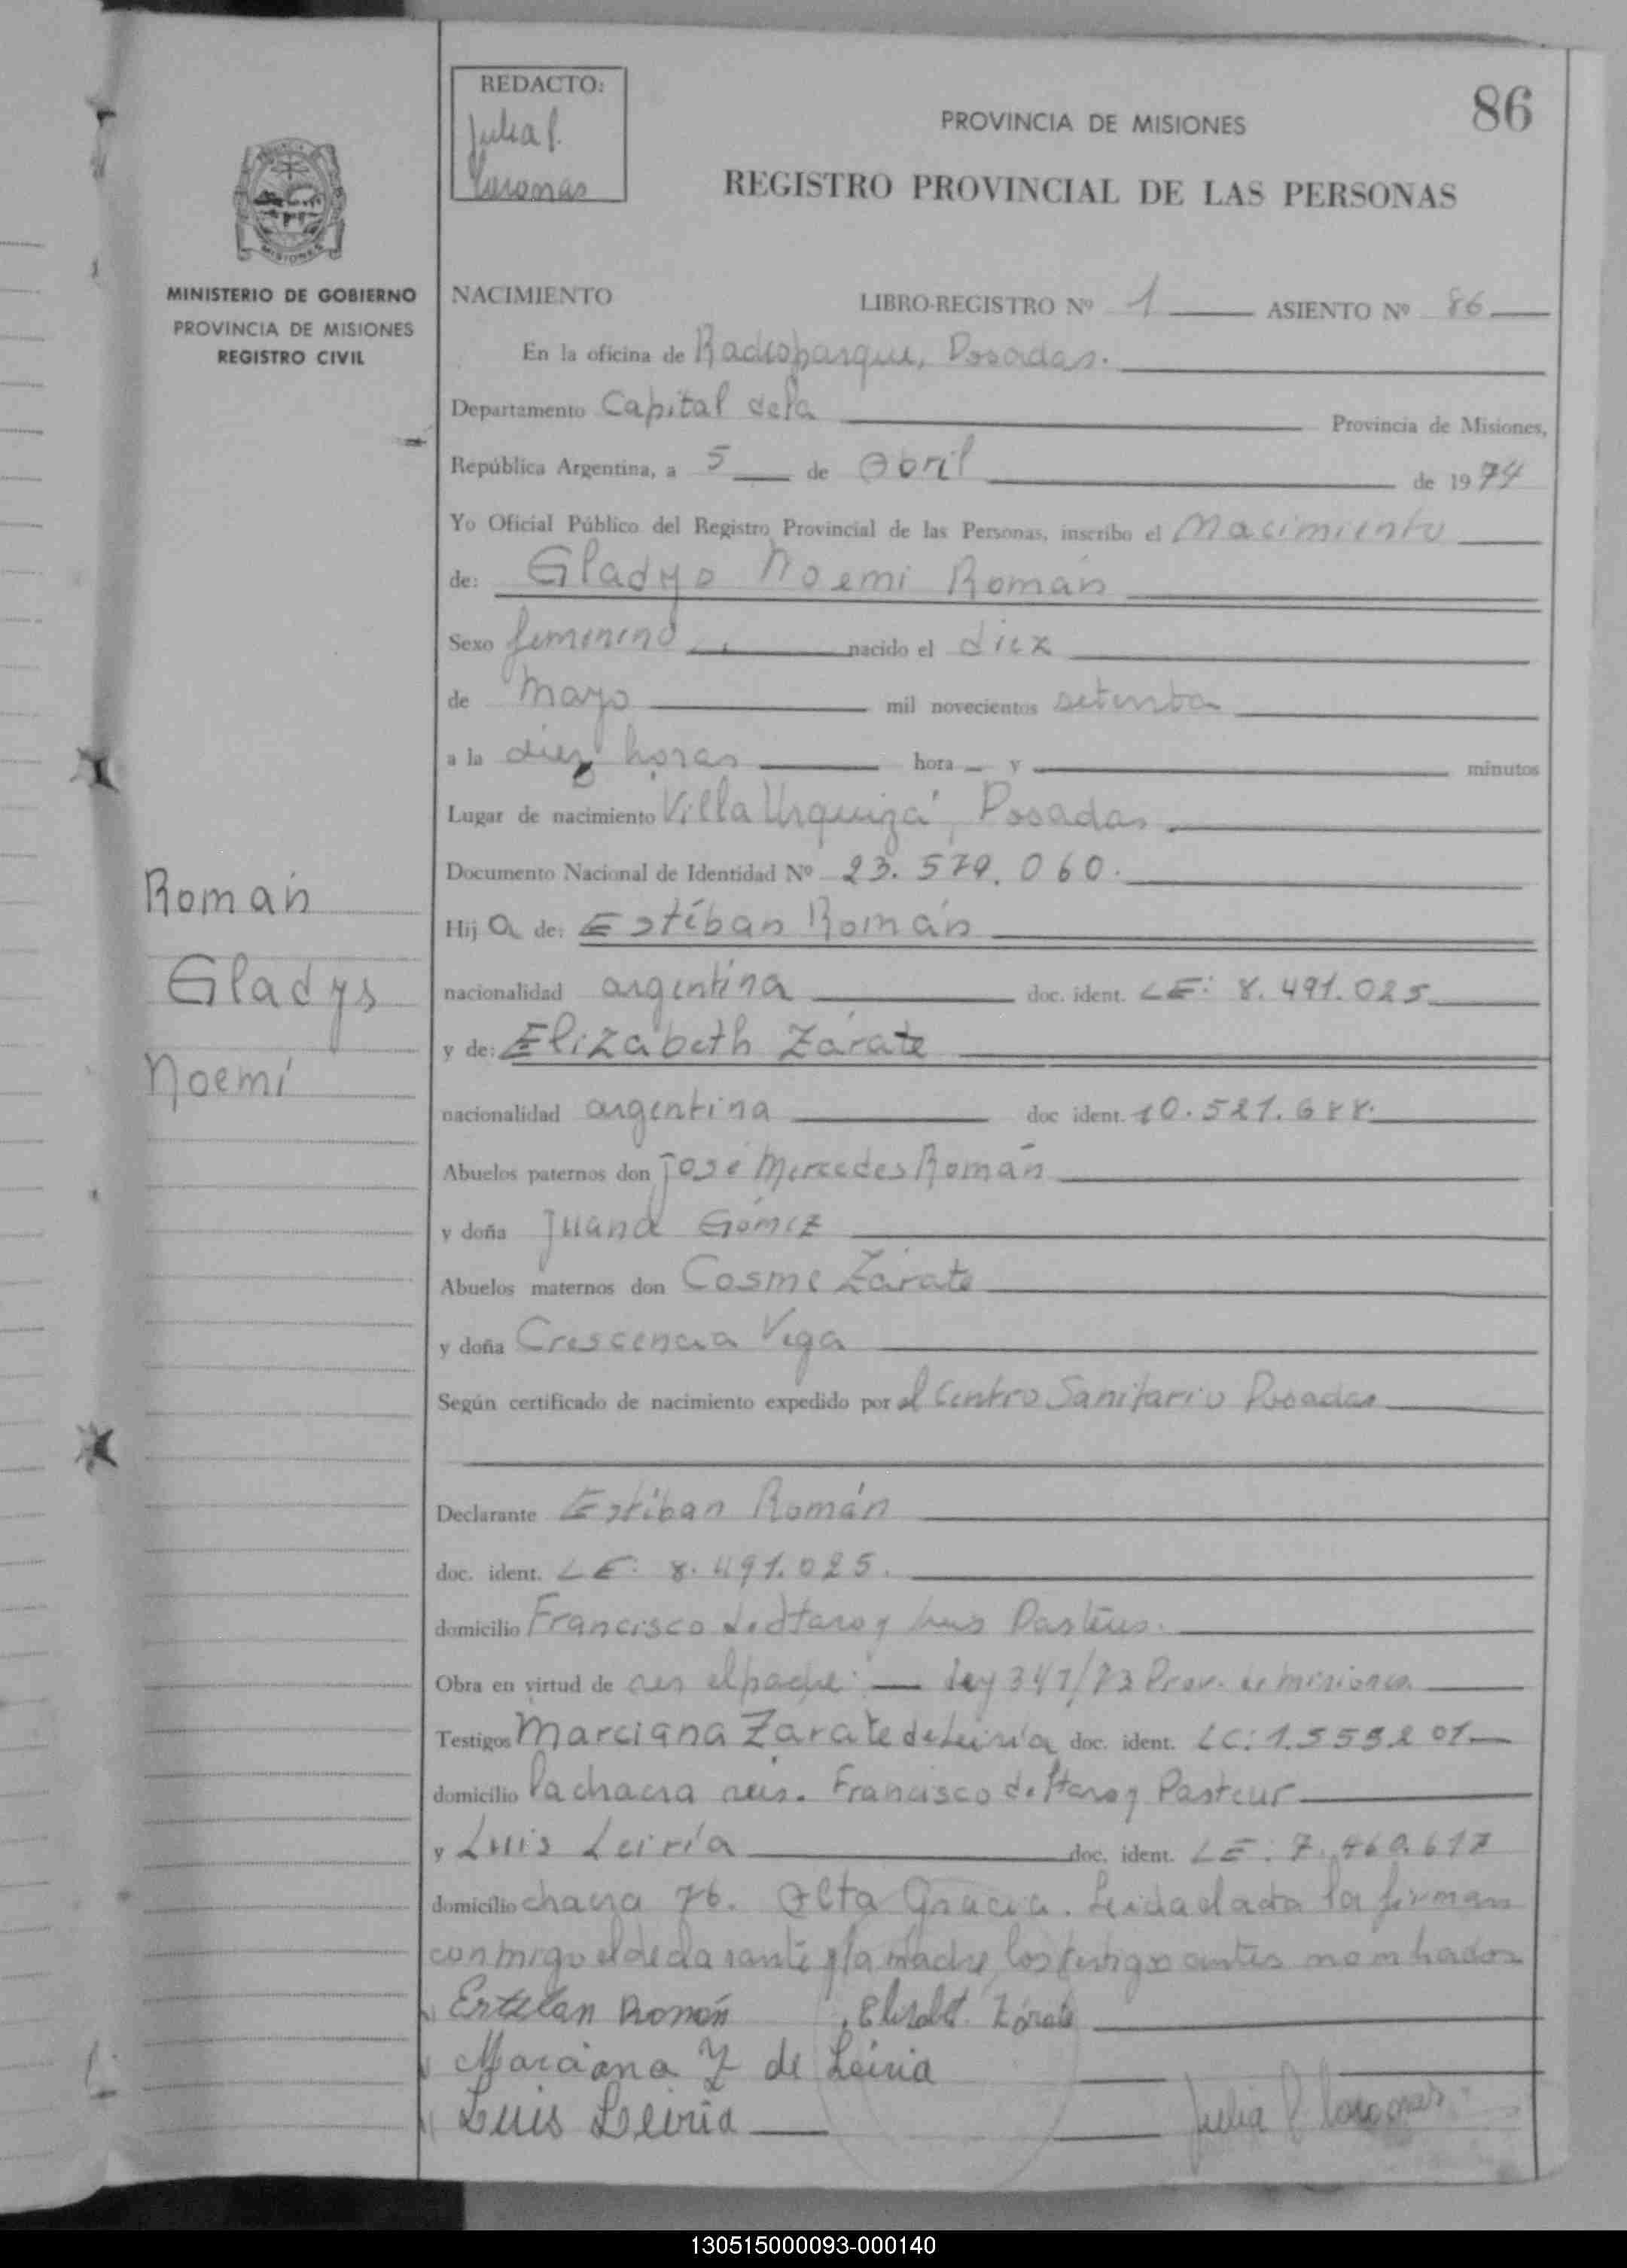 REDACTO:
Julia P.
86
PROVINCIA DE MISIONES
REGISTRO PROVINCIAL DE LAS PERSONAS
MISIONES
MINISTERIO DE GOBIERNO
PROVINCIA DE MISIONES
REGISTRO CIVIL
NACIMIENTO LIBRO-REGISTRO Nº 1 ASIENTO Nº 86
En la oficina de Radioparque, Posadas.
Departamento Capital de la Provincia de Misiones,
República Argentina, a 5 de Abril de 1974
Yo Oficial Público del Registro Provincial de las Personas, inscribo el Nacimiento
de: Gladys Noemi Román
Sexo femenino nacido el diez
de Mayo mil novecientos setenta
a la diez horas hora y minutos
Lugar de nacimiento Villa Urquiza, Posadas
Documento Nacional de Identidad Nº 23.579.060.
Hij a de: Esteban Román
nacionalidad argentina doc. ident. LE: 8.491.025
y de: Elizabeth Zárate
nacionalidad argentina doc ident. 10.521.688.
Abuelos paternos don José Mercedes Román
y doña Juana Gómez
Abuelos maternos don Cosme Zárate
y doña Crescencia Vega
Según certificado de nacimiento expedido por el Centro Sanitario Posadas
Declarante Esteban Román
doc. ident. LE: 8.491.025.
domicilio Francisco de Haro y Luis Pasteur.
Obra en virtud de ser el padre: Ley 347/73 Prov. de Misiones
Testigos Marciana Zarate de Leiria doc. ident. LC: 1.555.201
domicilio la chacra Francisco de Haro y Pasteur
y Luis Leiría doc. ident. LE: 7.460.617
domicilio chacra 76. Alta Gracia. Leida el acta la firman
conmigo el declarante y la madre, los testigos antes nombrados
Esteban Román Elisabet Zárate
Marciana Z de Leiria
Luis Leiria Julia P
Román
Gladys
Noemí
130515000093-000140